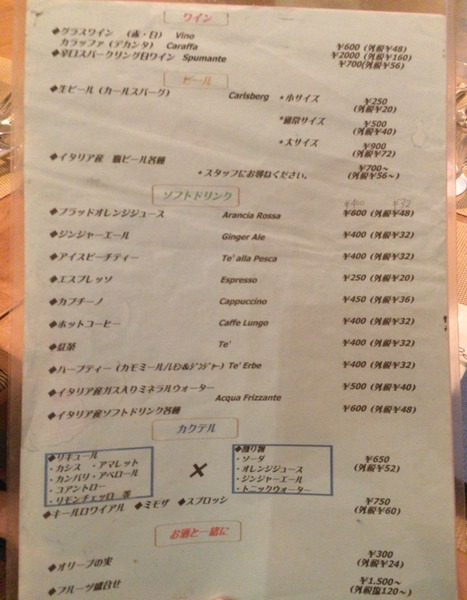 ワイン
◆グラスワイン (赤・白) Vino ¥600 (外税¥48)
カラッファ (デカンタ) Caraffa ¥2000 (外税¥160)
◆辛口スパークリング白ワイン Spumante ¥700(外税¥56)
ビール
◆生ビール (カールスバーグ) Carlsberg *小サイズ ¥250
(外税¥20)
*通常サイズ ¥500
(外税¥40)
*大サイズ ¥900
(外税¥72)
◆イタリア産 瓶ビール各種 ¥700~
(外税¥56~)
*スタッフにお尋ねください。
ソフトドリンク
¥400 ¥32
◆ブラッドオレンジジュース Arancia Rossa ¥600 (外税¥48)
◆ジンジャーエール Ginger Ale ¥400 (外税¥32)
◆アイスピーチティー Te' alla Pesca ¥400 (外税¥32)
◆エスプレッソ Espresso ¥250 (外税¥20)
◆カプチーノ Cappuccino ¥450 (外税¥36)
◆ホットコーヒー Caffe Lungo ¥400 (外税¥32)
◆紅茶 Te' ¥400 (外税¥32)
◆ハーブティー (カモミール/レモン&ジンジャー) Te' Erbe ¥400 (外税¥32)
◆イタリア産ガス入りミネラルウォーター Acqua Frizzante ¥500 (外税¥40)
◆イタリア産ソフトドリンク各種 ¥600 (外税¥48)
カクテル
◆リキュール
・カシス ・アマレット
・カンパリ・アペロール
・コアントロー
・リモンチェッロ 等
×
◆割り物
・ソーダ
・オレンジジュース
・ジンジャーエール
・トニックウォーター
¥650
(外税¥52)
◆キールロワイアル ◆ミモザ ◆スプロッシ ¥750
(外税¥60)
お酒と一緒に
◆オリーブの実 ¥300
(外税¥24)
◆フルーツ盛合せ ¥1.500~
(外税¥120~)